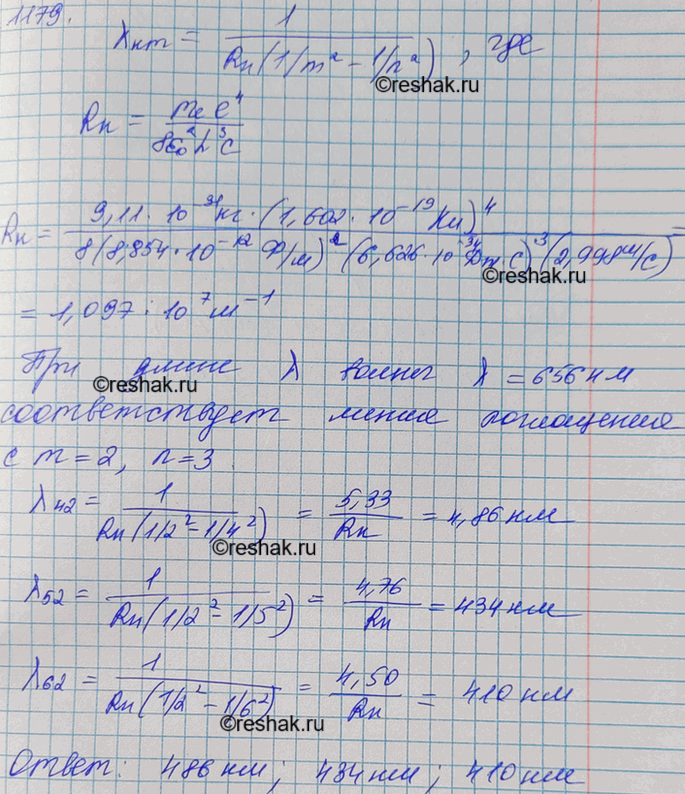 1179.
λnm = 1 / Rн(1/m² - 1/n²), где
©reshak.ru
Rн = me e⁴ / 8ε₀²h³c
Rн = 9,11 · 10⁻³¹кг · (1,602 · 10⁻¹⁹Кл)⁴ / 8(8,854 · 10⁻¹² Ф/м)² (6,626 · 10⁻³⁴Дж с)³ (2,998м/с) =
©reshak.ru
= 1,097 · 10⁷ м⁻¹
При длине λ волны λ = 656 нм
©reshak.ru
соответствует линия поглощения
с m = 2, n = 3.
λ42 = 1 / Rн(1/2² - 1/4²) = 5,33 / Rн = 4,86 нм
©reshak.ru
λ52 = 1 / Rн(1/2² - 1/5²) = 4,76 / Rн = 434 нм
λ62 = 1 / Rн(1/2² - 1/6²) = 4,50 / Rн = 410 нм
©reshak.ru
Ответ: 486 нм; 434 нм; 410 нм